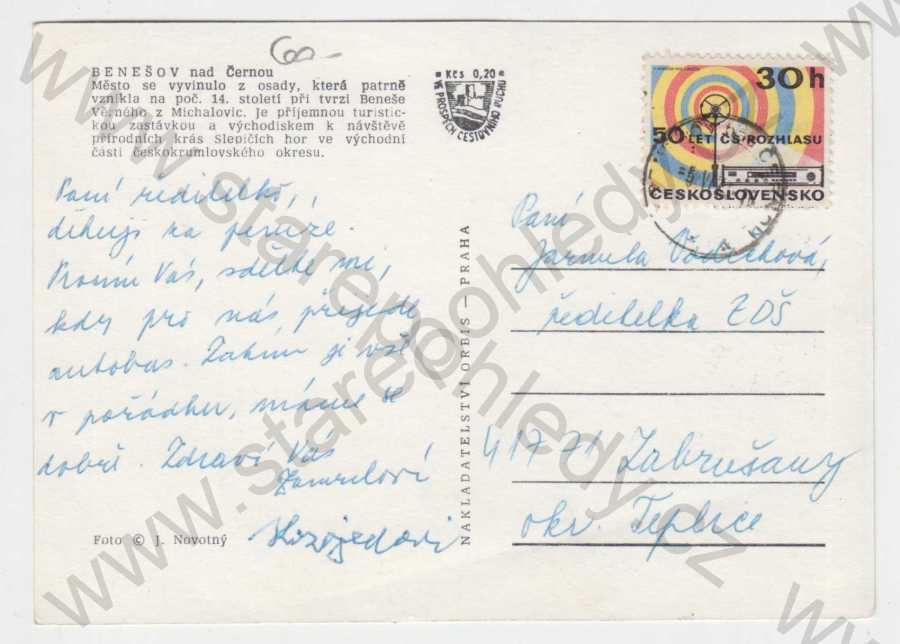 60-
BENEŠOV nad Černou
Město se vyvinulo z osady, která patrně
vznikla na poč. 14. století při tvrzi Beneše
Věrného z Michalovic. Je příjemnou turistic-
kou zastávkou a východiskem k návštěvě
přírodních krás Slepičích hor ve východní
části českokrumlovského okresu.
Kčs 0,20
VE PROSPĚCH CESTOVNÍHO RUCHU
30h
50 LET ČS. ROZHLASU
ČESKOSLOVENSKO
Paní ředitelko,
děkuji za peníze.
Prosím Vás, sdělte mi,
kdy pro nás přijede
autobus. Zatím je vše
v pořádku, máme se
dobře. Zdraví Vás
Foto © J. Novotný
NAKLADATELSTVÍ ORBIS — PRAHA
Paní
Jarmila Vodičková,
ředitelka ZDŠ
417 71 Zabrušany
okr. Teplice
www.starepohledy.cz
www.starepohledy.cz